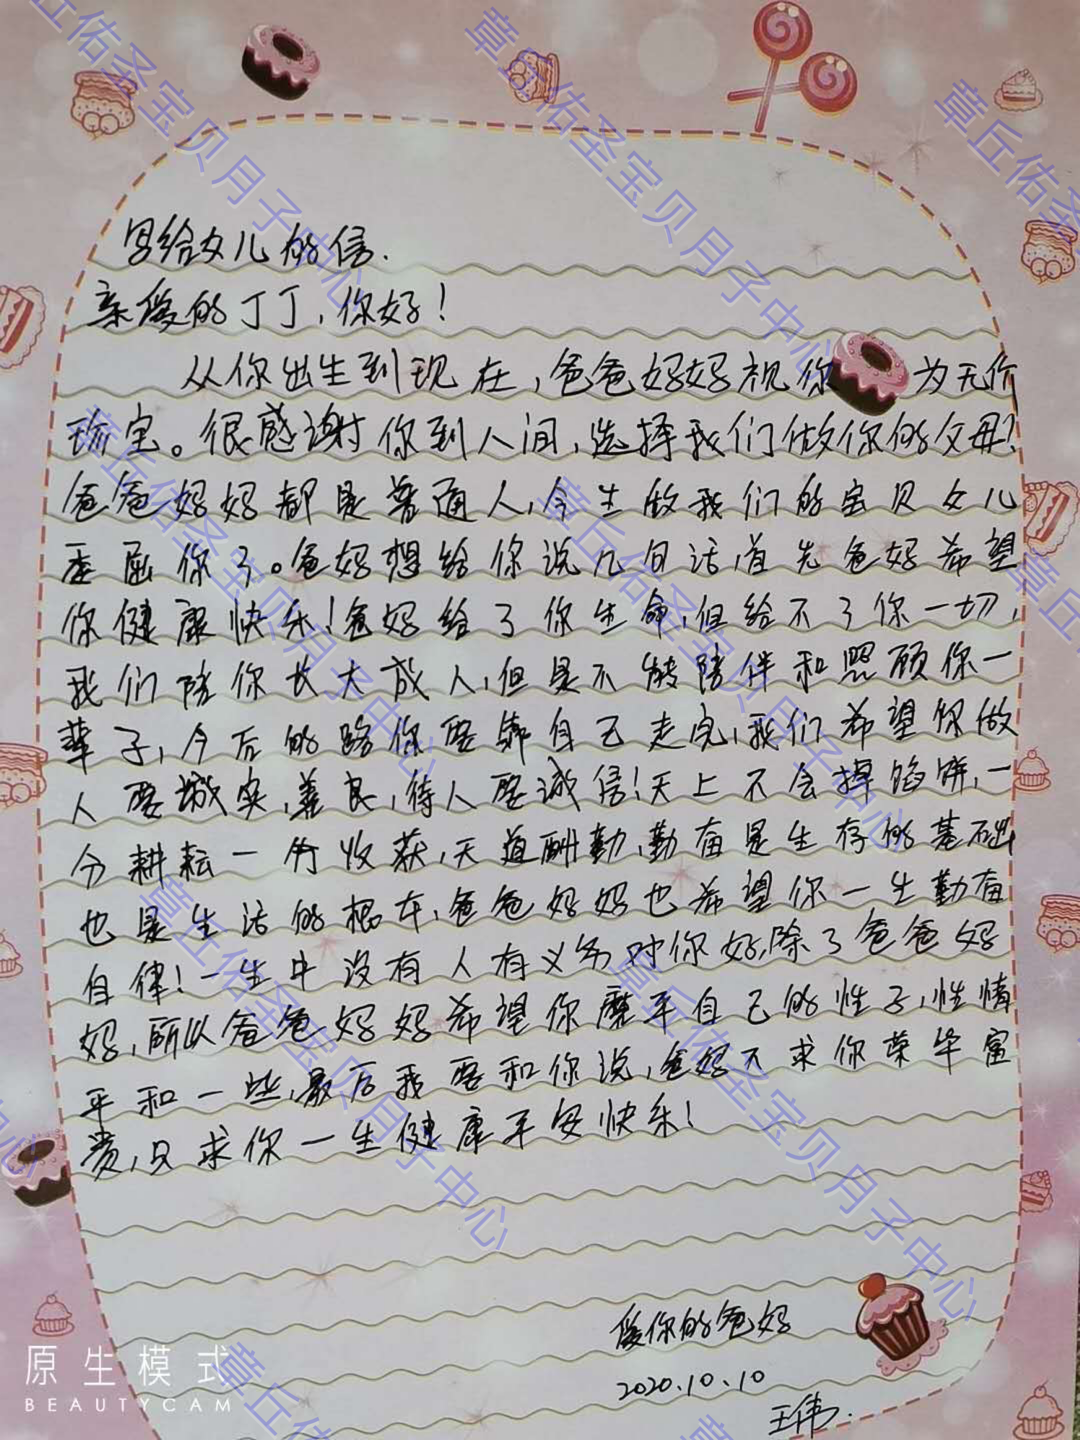 写给女儿的信.
亲爱的丁丁,你好!
从你出生到现在,爸爸妈妈视你为无价
珍宝。很感谢你到人间,选择我们做你的父母?
爸爸妈妈都是普通人,今生做我们的宝贝女儿
委屈你了。爸妈想给你说几句话,首先爸妈希望
你健康快乐!爸妈给了你生命,但给不了你一切,
我们陪你长大成人,但是不能陪伴和照顾你一
辈子,今后的路你要靠自己走完,我们希望你做
人要诚实,善良,待人要诚信!天上不会掉馅饼,一
分耕耘一份收获,天道酬勤,勤奋是生存的基础
也是生活的根本,爸爸妈妈也希望你一生勤奋
自律!一生中没有人有义务对你好,除了爸爸妈
妈,所以爸爸妈妈希望你磨平自己的性子,性情
平和一些,最后我要和你说,爸妈不求你荣华富
贵,只求你一生健康平安快乐!
爱你的爸妈
2020.10.10
王伟.
原生模式
BEAUTYCAM
章丘佑圣宝贝月子中心
章丘佑圣宝贝月子中心
章丘佑圣宝贝月子中心
章丘佑圣宝贝月子中心
章丘佑圣宝贝月子中心
章丘佑圣宝贝月子中心